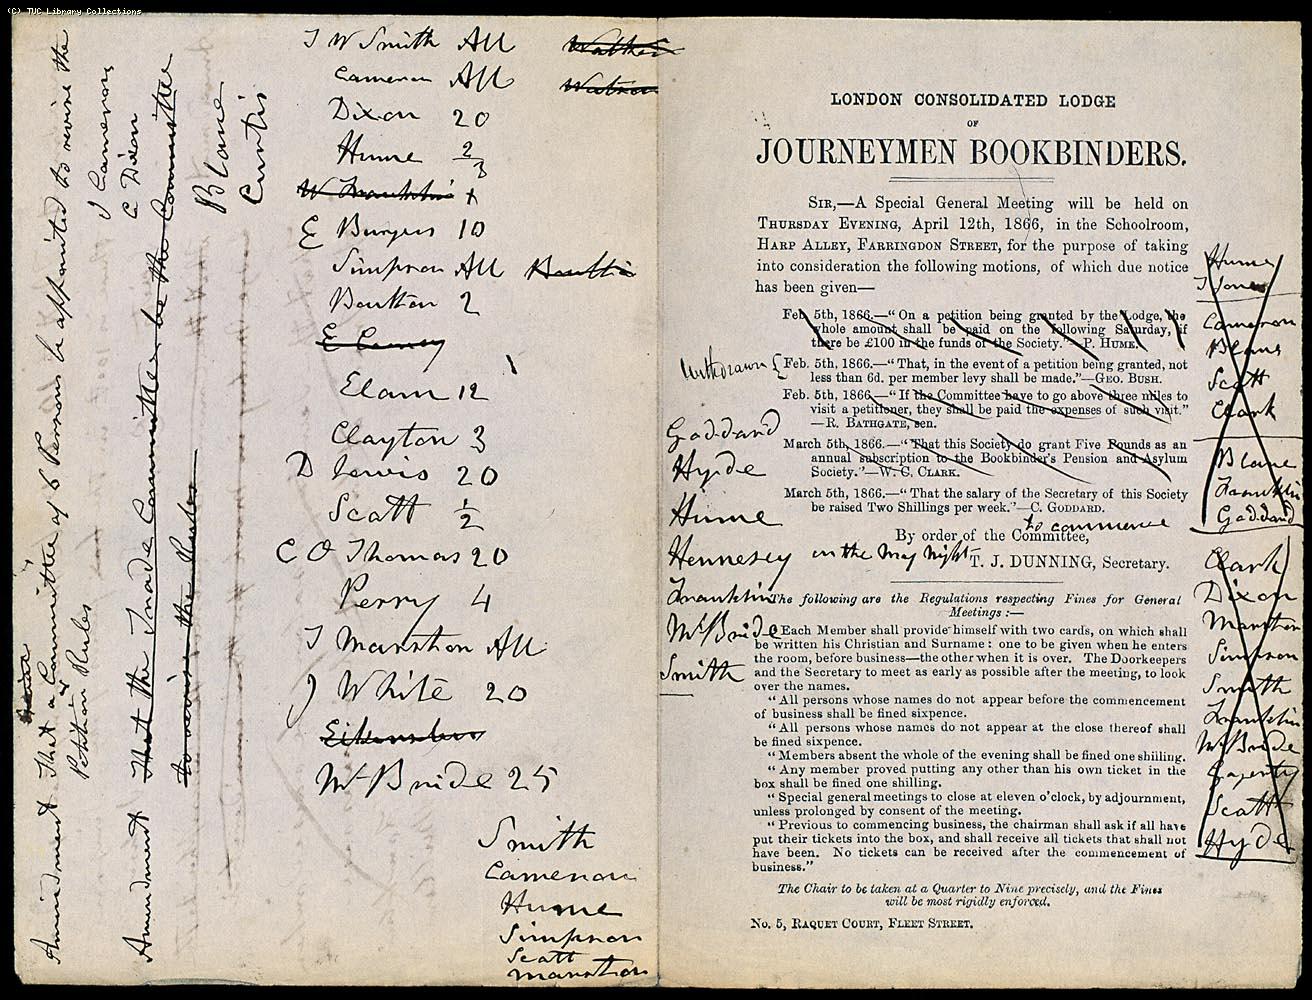 (C) TUC Library Collections
Amendment That a Committee of 6 Persons be appointed to revise the
Petition Rules
J Cameron
C Dixon
Amendment That the Trade Committee be the Committee
to revise the Rules
Blane
Curtis
J W Smith All
Cameron All
Dixon 20
Hume 2/3
W Franklin 1
E Burgess 10
Simpson All
Boulton 2
Elam 12
Clayton 3
D Lewis 20
Scott 1/2
C O Thomas 20
Perry 4
J Marston All
J White 20
McBride 25
Smith
Cameron
Hume
Simpson
Scott
Marston
Watson
LONDON CONSOLIDATED LODGE
OF
JOURNEYMEN BOOKBINDERS.
SIR,—A Special General Meeting will be held on
THURSDAY EVENING, April 12th, 1866, in the Schoolroom,
HARP ALLEY, FARRINGDON STREET, for the purpose of taking
into consideration the following motions, of which due notice
has been given—
Feb 5th, 1866.—“On a petition being granted by the Lodge, the
whole amount shall be paid on the following Saturday, if
there be £100 in the funds of the Society.”—P. HUME.
Withdrawn {
Feb. 5th, 1866.—“That, in the event of a petition being granted, not
less than 6d. per member levy shall be made.”—GEO. BUSH.
Feb. 5th, 1866.—“If the Committee have to go above three miles to
visit a petitioner, they shall be paid the expenses of such visit.”
—R. BATHGATE, sen.
March 5th, 1866.—“That this Society do grant Five Pounds as an
annual subscription to the Bookbinder's Pension and Asylum
Society.”—W. C. CLARK.
March 5th, 1866.—“That the salary of the Secretary of this Society
be raised Two Shillings per week.”—C. GODDARD.
to commence
on the May Night
By order of the Committee,
T. J. DUNNING, Secretary.
The following are the Regulations respecting Fines for General
Meetings:—
“Each Member shall provide himself with two cards, on which shall
be written his Christian and Surname: one to be given when he enters
the room, before business—the other when it is over. The Doorkeepers
and the Secretary to meet as early as possible after the meeting, to look
over the names.
“All persons whose names do not appear before the commencement
of business shall be fined sixpence.
“All persons whose names do not appear at the close thereof shall
be fined sixpence.
“Members absent the whole of the evening shall be fined one shilling.
“Any member proved putting any other than his own ticket in the
box shall be fined one shilling.
“Special general meetings to close at eleven o'clock, by adjournment,
unless prolonged by consent of the meeting.
“Previous to commencing business, the chairman shall ask if all have
put their tickets into the box, and shall receive all tickets that shall not
have been. No tickets can be received after the commencement of
business.”
The Chair to be taken at a Quarter to Nine precisely, and the Fines
will be most rigidly enforced.
No. 5, RAQUET COURT, FLEET STREET.
Goddard
Hyde
Hume
Hennesey
Franklin
McBride
Smith
Hume
J Jones
Cameron
Blane
Scott
Clark
Blane
Franklin
Goddard
Clark
Dixon
Marston
Simpson
Smith
Franklin
McBride
Scott
Hyde